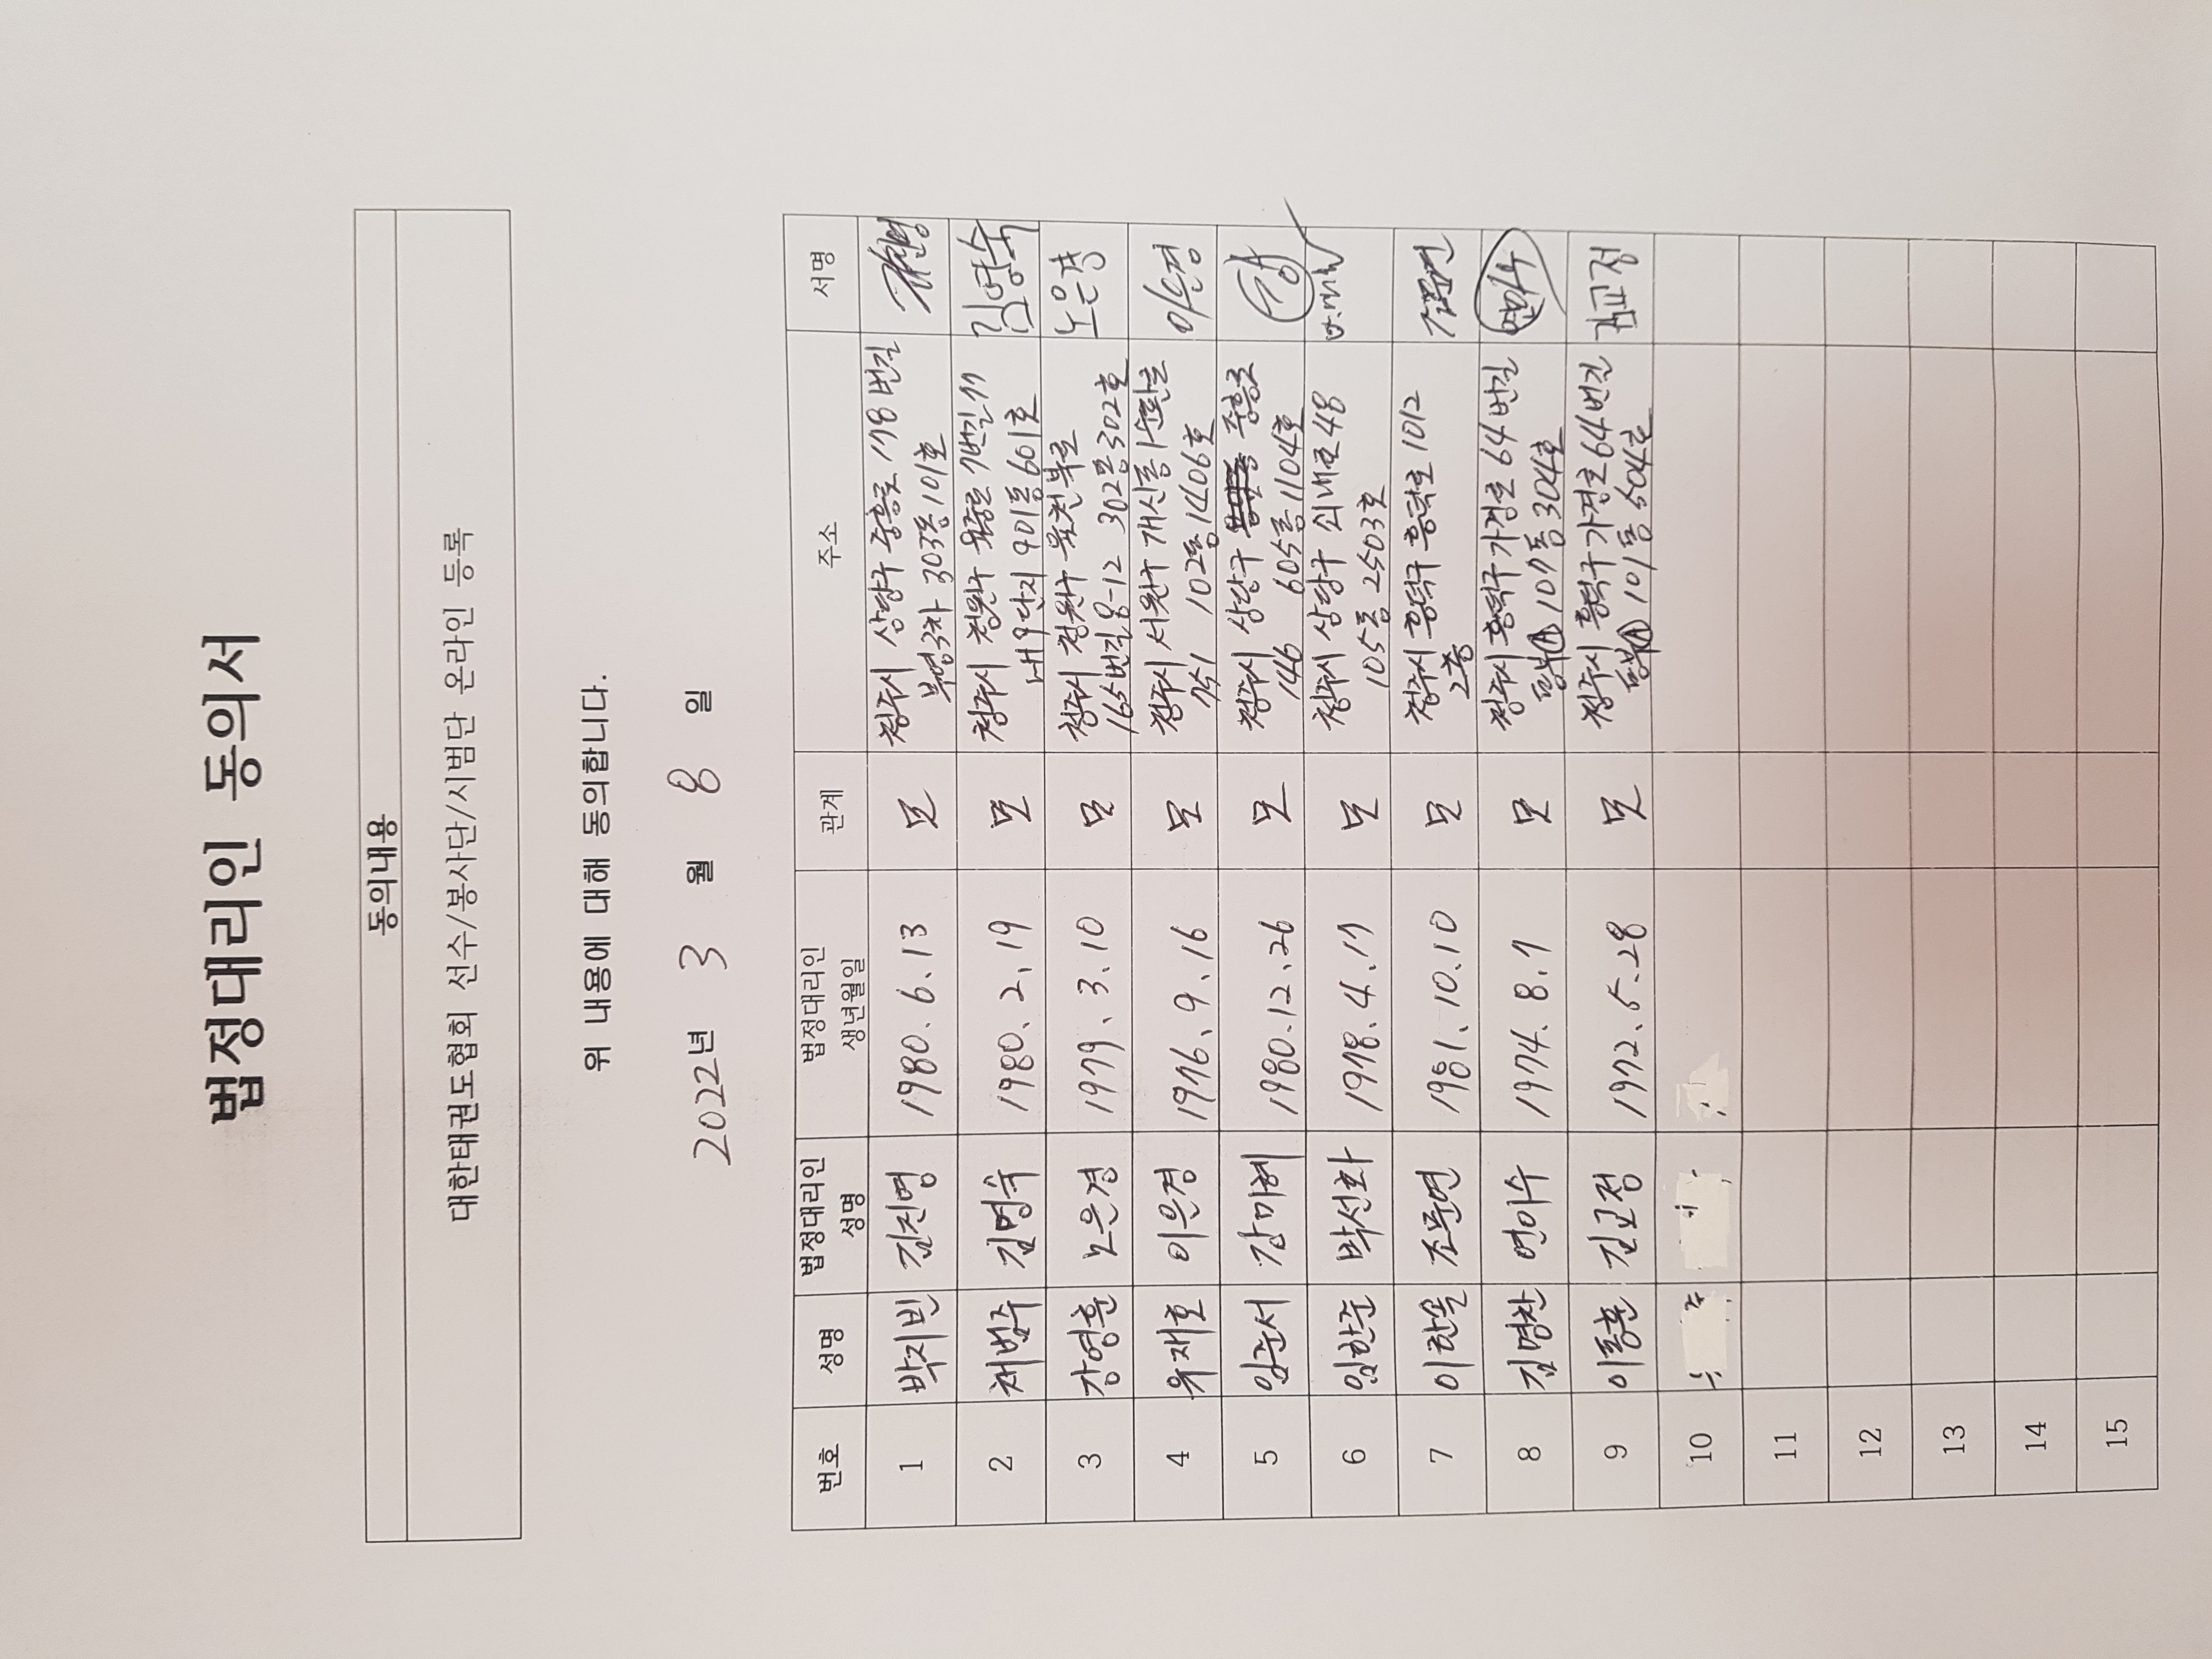 법정대리인 동의서
동의내용
대한태권도협회 선수/봉사단/시범단 온라인 등록
위 내용에 대해 동의합니다.
2022년 3 월 8 일
번호 성명 법정대리인 성명 법정대리인 생년월일 관계 주소 서명
1 박지빈 김진영 1980. 6. 13 모 청주시 상당구 중흥로 118번길
부영3차 303동 101호
2 채범주 김영숙 1980. 2. 19 모 청주시 청원구 율중로 7번길 11 김영숙
내 9단지 901동 601호
3 강영훈 노은경 1979. 3. 10 모 청주시 청원구 율천북로 노은경
165번길 8-12 302동 302호
4 유재호 이은경 1976. 9. 16 모 청주시 서원구 개신동 1순환로 이은경
751 102동 1406호
5 임준서 강미혜 1980. 12. 26 모 청주시 상당구 중흥로
146 605동 1104호
6 임한준 박선화 1978. 4. 17 모 청주시 상당구 쇠내로 48
105동 2503호
7 이찬솔 조문연 1981. 10. 10 모 청주시 흥덕구 흥덕로 1012
2층
8 김명찬 연이수 1974. 8. 7 모 청주시 흥덕구 가경로 64번길
동부 A 107동 304호
9 이동훈 김교정 1972. 5. 28 모 청주시 흥덕구 가경로 64번길 김교정
동부 A 101동 504호
10
11
12
13
14
15